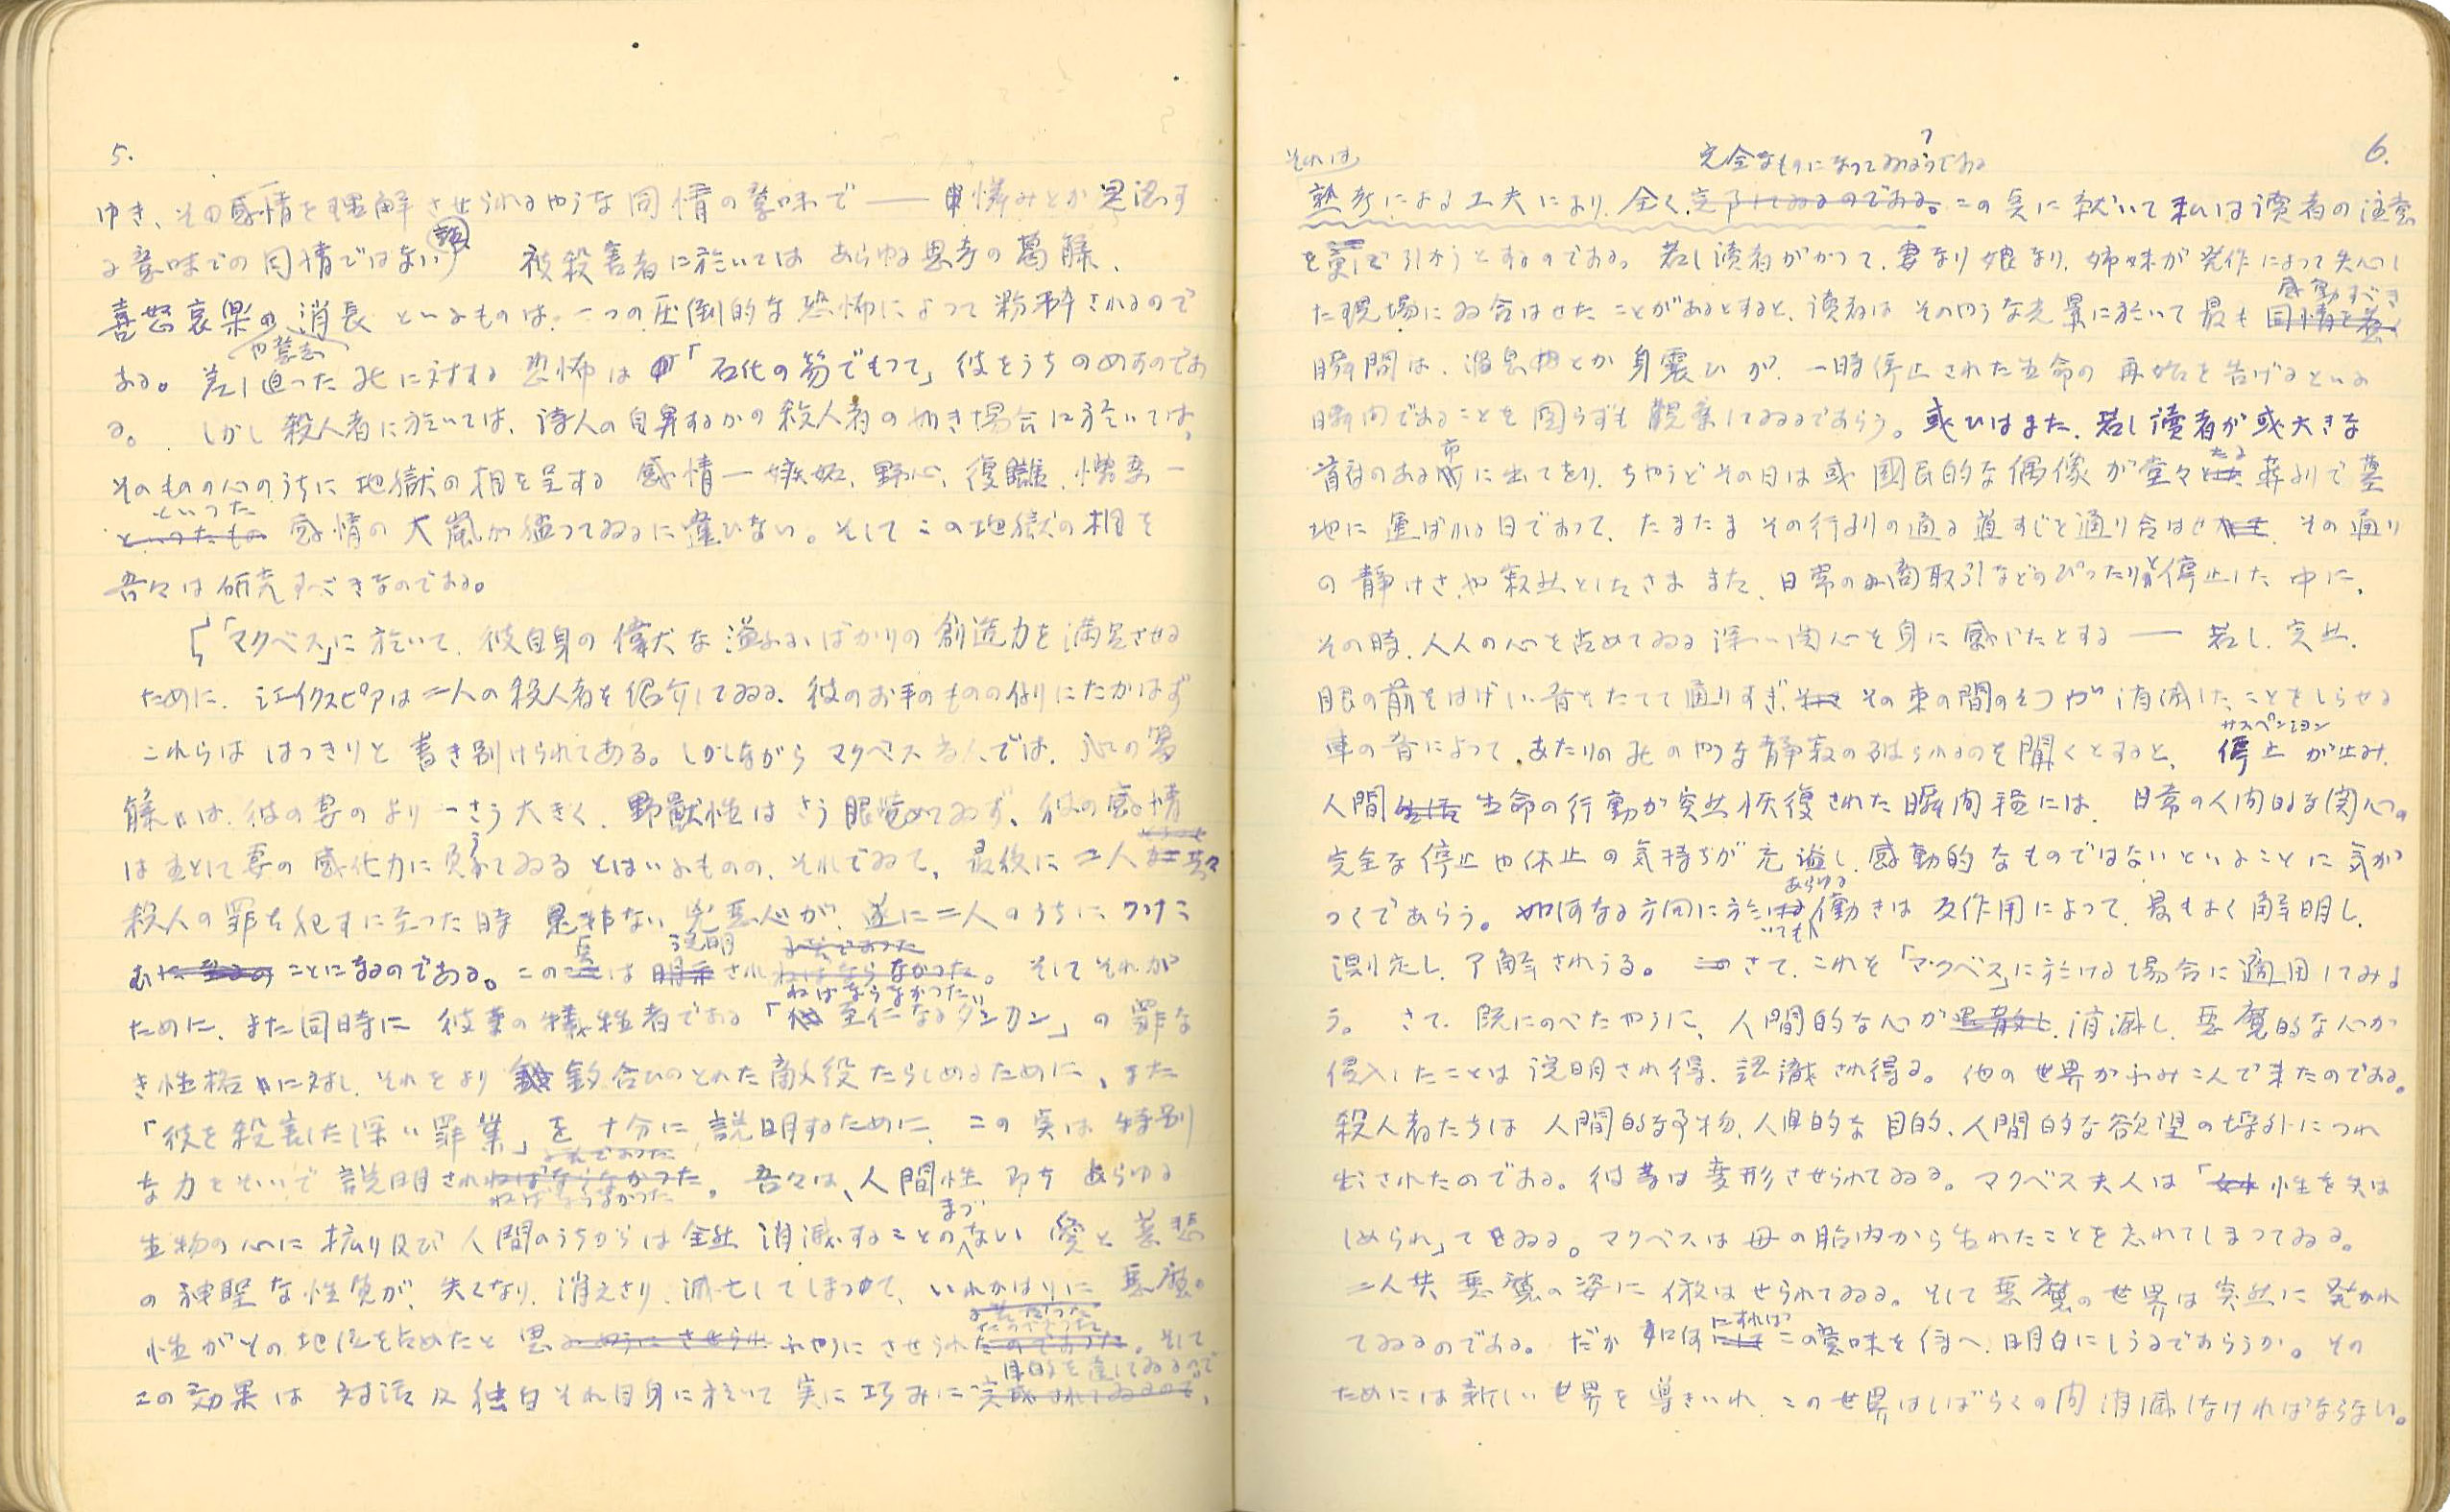 5.
ゆき、その感情を理解させられるやうな同情の意味で——憐みとか是認す
る意味での同情ではない 註 被殺害者に於いてはあらゆる思考の葛藤、
喜怒哀楽の消長といふものは、一つの圧倒的な恐怖によつて粉砕されるので
や意志
ある。差し迫った死に対する恐怖は「石化の笏でもつて」彼をうちのめすのであ
る。しかし殺人者に於いては、詩人の自身するかの殺人者の如き場合に於いては、
そのものの心のうちに地獄の相を呈する感情—嫉妬、野心、復讐、憎悪—
といつた
といつたもの 感情の大嵐が猛つてゐるに違ひない。そしてこの地獄の相を
吾々は研究すべきなのである。
「マクベス」に於いて、彼自身の偉大な溢るゝばかりの創造力を満足させる
ために、シェイクスピアは二人の殺人者を紹介してゐる。彼のお手のものの例にたがはず
これらははっきりと書き別けられてある。しかしながらマクベス夫人では、心の葛
藤は、彼の妻のより一さう大きく、野獣性はさう眼覚めてゐず、彼の感情
は主として妻の感化力に負ふてゐるとはいふものの、それでゐて、最後に二人
殺人の罪を犯すに至つた時 兇悪心が、遂に二人のうちに
ことになるのである。この は 説明 され ねばならなかつた。そしてそれが
ねばならなかつた
ために、また同時に彼等の犠牲者である「至仁なるダンカン」の罪な
き性格に対し、それをより釣合ひのとれた敵役たらしめるために、また
「彼を殺害した深い罪業」を十分に説明するために、この実は特別
な力をそいで説明されねばならなかつた。吾々は、人間性即ちあらゆる
ねばならなかつた まづ
生物の心に拡り及び人間のうちからは全然消滅することのない愛と慈悲
の神聖な性質が、失くなり、消えさり、滅亡してしまつて、いれかはりに悪魔
性がその地位を占めたと思 ふやうにさせられたのであつた。そして
目的を達してゐるので
この効果は対話及独白それ自身に於いて実に巧みに完成されてゐるので、
6.
それは 完全なものになつてゐるやうである
熟考による工夫により、全く完了してゐるのである。この点に就いて私は読者の注意
を引かうとするのである。若し読者がかつて、妻なり娘なり、姉妹が発作によつて失心し
感動すべき
た現場にゐ合はせたことがあるとすると、読者はそのやうな光景に於いて最も同情を惹く
瞬間は、溜息とか身震ひが、一時停止された生命の再始を告げるといふ
瞬間であることを図らずも観察してゐるであらう。或ひはまた、若し読者が或大きな
首府のある市に出てをり、ちやうどその日は或国民的な偶像が堂々たる葬列で墓
地に運ばれる日であつて、たまたまその行列の通る道すじを通り合はせ、その通り
の静けさや寂然としたさま また、日常の商取引などのぴったりと停止した中に、
その時、人人の心を占めてゐる深い関心を身に感じたとする——若し、突然、
眼の前をはげしい音をたてて通りすぎ、その束の間の が消滅したことをしらせる
サスペンション
車の音によつて、あたりの死のやうな静寂の破られるのを聞くとすると、停止が止み、
人間 生活 生命の行動が突然恢復された瞬間程には、日常の人間的な関心の
完全な停止や休止の気持ちが充溢し、感動的なものではないといふことに気が
あらゆる
つくであらう。如何なる方向に於いても働きは反作用によつて、最もよく解明し、
測定し、了解されうる。さて、これを「マクベス」に於ける場合に適用してみよ
う。さて、既にのべたやうに、人間的な心が 消滅し、悪魔的な心が
侵入したことは説明され得、認識され得る。他の世界がふみこんで来たのである。
殺人者たちは人間的な事物、人間的な目的、人間的な欲望の埒外につれ
出されたのである。彼等は変形させられてゐる。マクベス夫人は「性を失は
しめられ」てゐる。マクベスは母の胎内から生れたことを忘れてしまつてゐる。
二人共悪魔の姿に倣はせられてゐる。そして悪魔の世界は突然に発かれ
にすれば
てゐるのである。だが如何にしてこの意味を伝へ、明白にしうるであらうか。その
ためには新しい世界を導きいれ、この世界はしばらくの間消滅しなければならない。